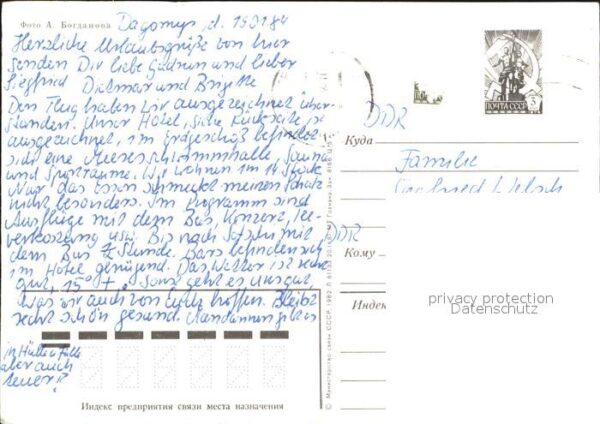 Фото А. Богданова
Dagomys, d.
Herzliche Urlaubsgrüße von hier
senden Dir liebe Gudrun und lieber
Siegfried Dietmar und Brigitte
Den Flug haben wir ausgezeichnet über-
standen. Unser Hotel, siehe Rückseite, ist
ausgezeichnet, im Erdgeschoß befindet
sich eine Meeresschwimmhalle, Sauna
und Sporträume. Wir wohnen im 14. Stock
Nur das Essen schmeckt meinem Schatz
nicht besonders. Im Programm sind
Ausflüge mit dem Bus, Konzert, Tee-
verkostung usw. Bis nach Sotschi mit
dem Bus Stunde. Bars befinden sich
im Hotel genügend. Das Wetter ist sehr
gut, 15° +. Sonst geht es uns gut
was wir auch von Euch hoffen. Bleibt
recht schön gesund.
in Hülle u. Fülle
aber auch
teuer!!
Индекс предприятия связи места назначения
© Министерство связи СССР, 1982
ПОЧТА СССР
DDR
Куда
Familie
DDR
Кому
Индек
privacy protection
Datenschutz